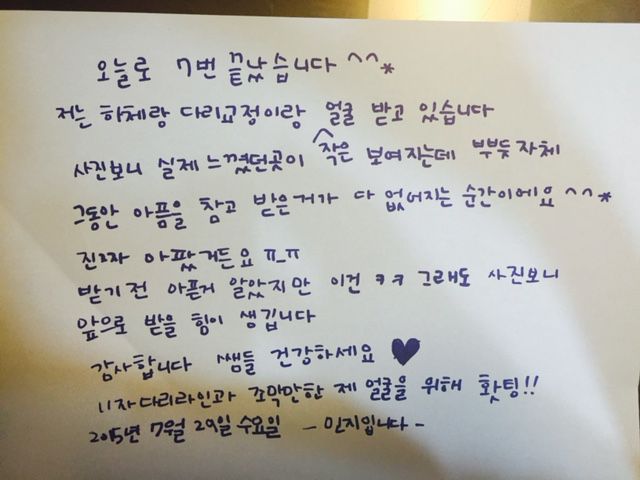 오늘로 7번 끝났습니다 ^^*
저는 하체랑 다리교정이랑 얼굴 받고 있습니다
사진보니 실제 느꼈던곳이 작은 보여지는데 뿌듯자체
그동안 아픔을 참고 받은거가 다 없어지는 순간이에요 ^^*
진짜 아팠거든요 ㅠ_ㅠ
받기전 아픈거 알았지만 이건 ㅋㅋ 그래도 사진보니
앞으로 받을 힘이 생깁니다
감사합니다 쌤들 건강하세요 ♥
11자다리라인과 조막만한 제 얼굴을 위해 홧팅!!
2015년 7월 29일 수요일 - 민지입니다 -